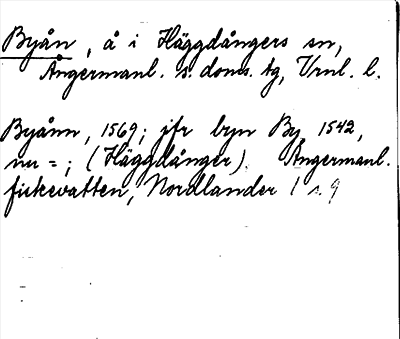 Byån, å i Häggdångers sn,
Ångermanl. s. doms. tg, Vrnl. l.
Byånn, 1569; jfr byn By 1542,
nu =; (Häggdånger). Ångermanl.
fiskevatten, Nordlander 1 s. 9